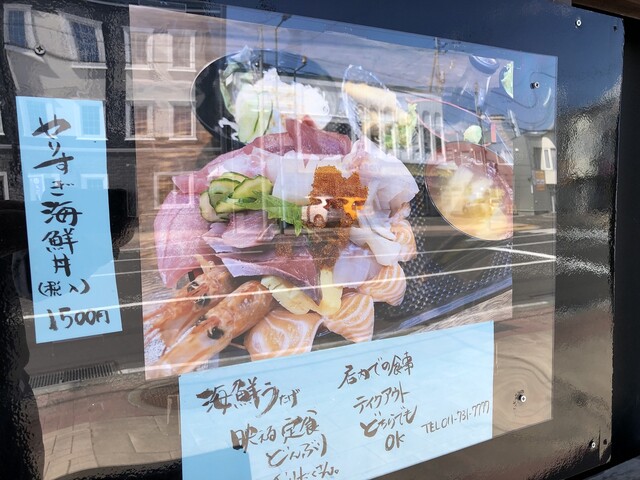 やりすぎ海鮮丼
(税入)
1500円
海鮮うたげ
定食
どんぶり
店内での食事
テイクアウト
どちらでも
OK
TEL011-731-7777